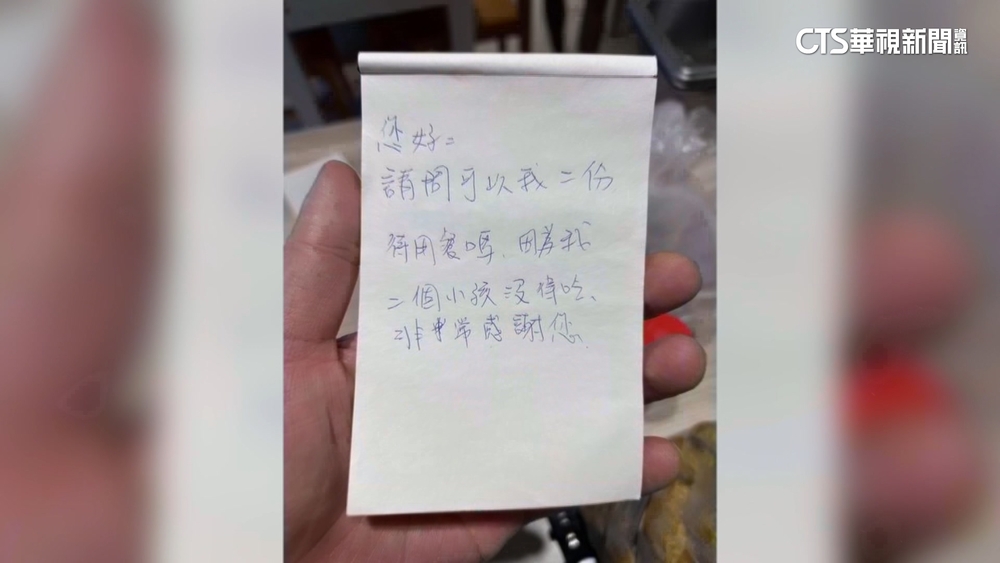 CTS華視新聞資訊
您好=
請問可以我二份
待用餐嗎、因為我
二個小孩沒得吃、
非常感謝您.